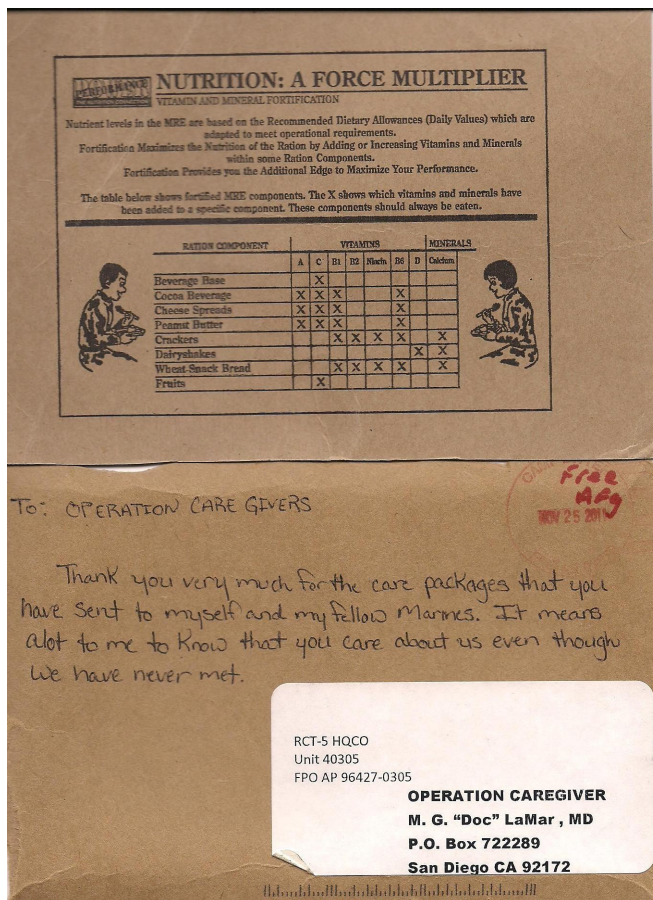 PERFORMANCE
NUTRITION: A FORCE MULTIPLIER
VITAMIN AND MINERAL FORTIFICATION
Nutrient levels in the MRE are based on the Recommended Dietary Allowances (Daily Values) which are
adapted to meet operational requirements.
Fortification Maximizes the Nutrition of the Ration by Adding or Increasing Vitamins and Minerals
within some Ration Components.
Fortification Provides you the Additional Edge to Maximize Your Performance.
The table below shows fortified MRE components. The X shows which vitamins and minerals have
been added to a specific component. These components should always be eaten.
RATION COMPONENT VITAMINS MINERALS
A C B1 B2 Niacin B6 D Calcium
Beverage Base X
Cocoa Beverage X X X X
Cheese Spreads X X X X
Peanut Butter X X X X
Crackers X X X X X
Dairyshakes X X
Wheat Snack Bread X X X X X
Fruits X
Free
Afg
NOV 25 201
To: OPERATION CARE GIVERS
Thank you very much for the care packages that you
have sent to myself and my fellow Marines. It means
alot to me to know that you care about us even though
we have never met.
RCT-5 HQCO
Unit 40305
FPO AP 96427-0305
OPERATION CAREGIVER
M. G. “Doc” LaMar , MD
P.O. Box 722289
San Diego CA 92172